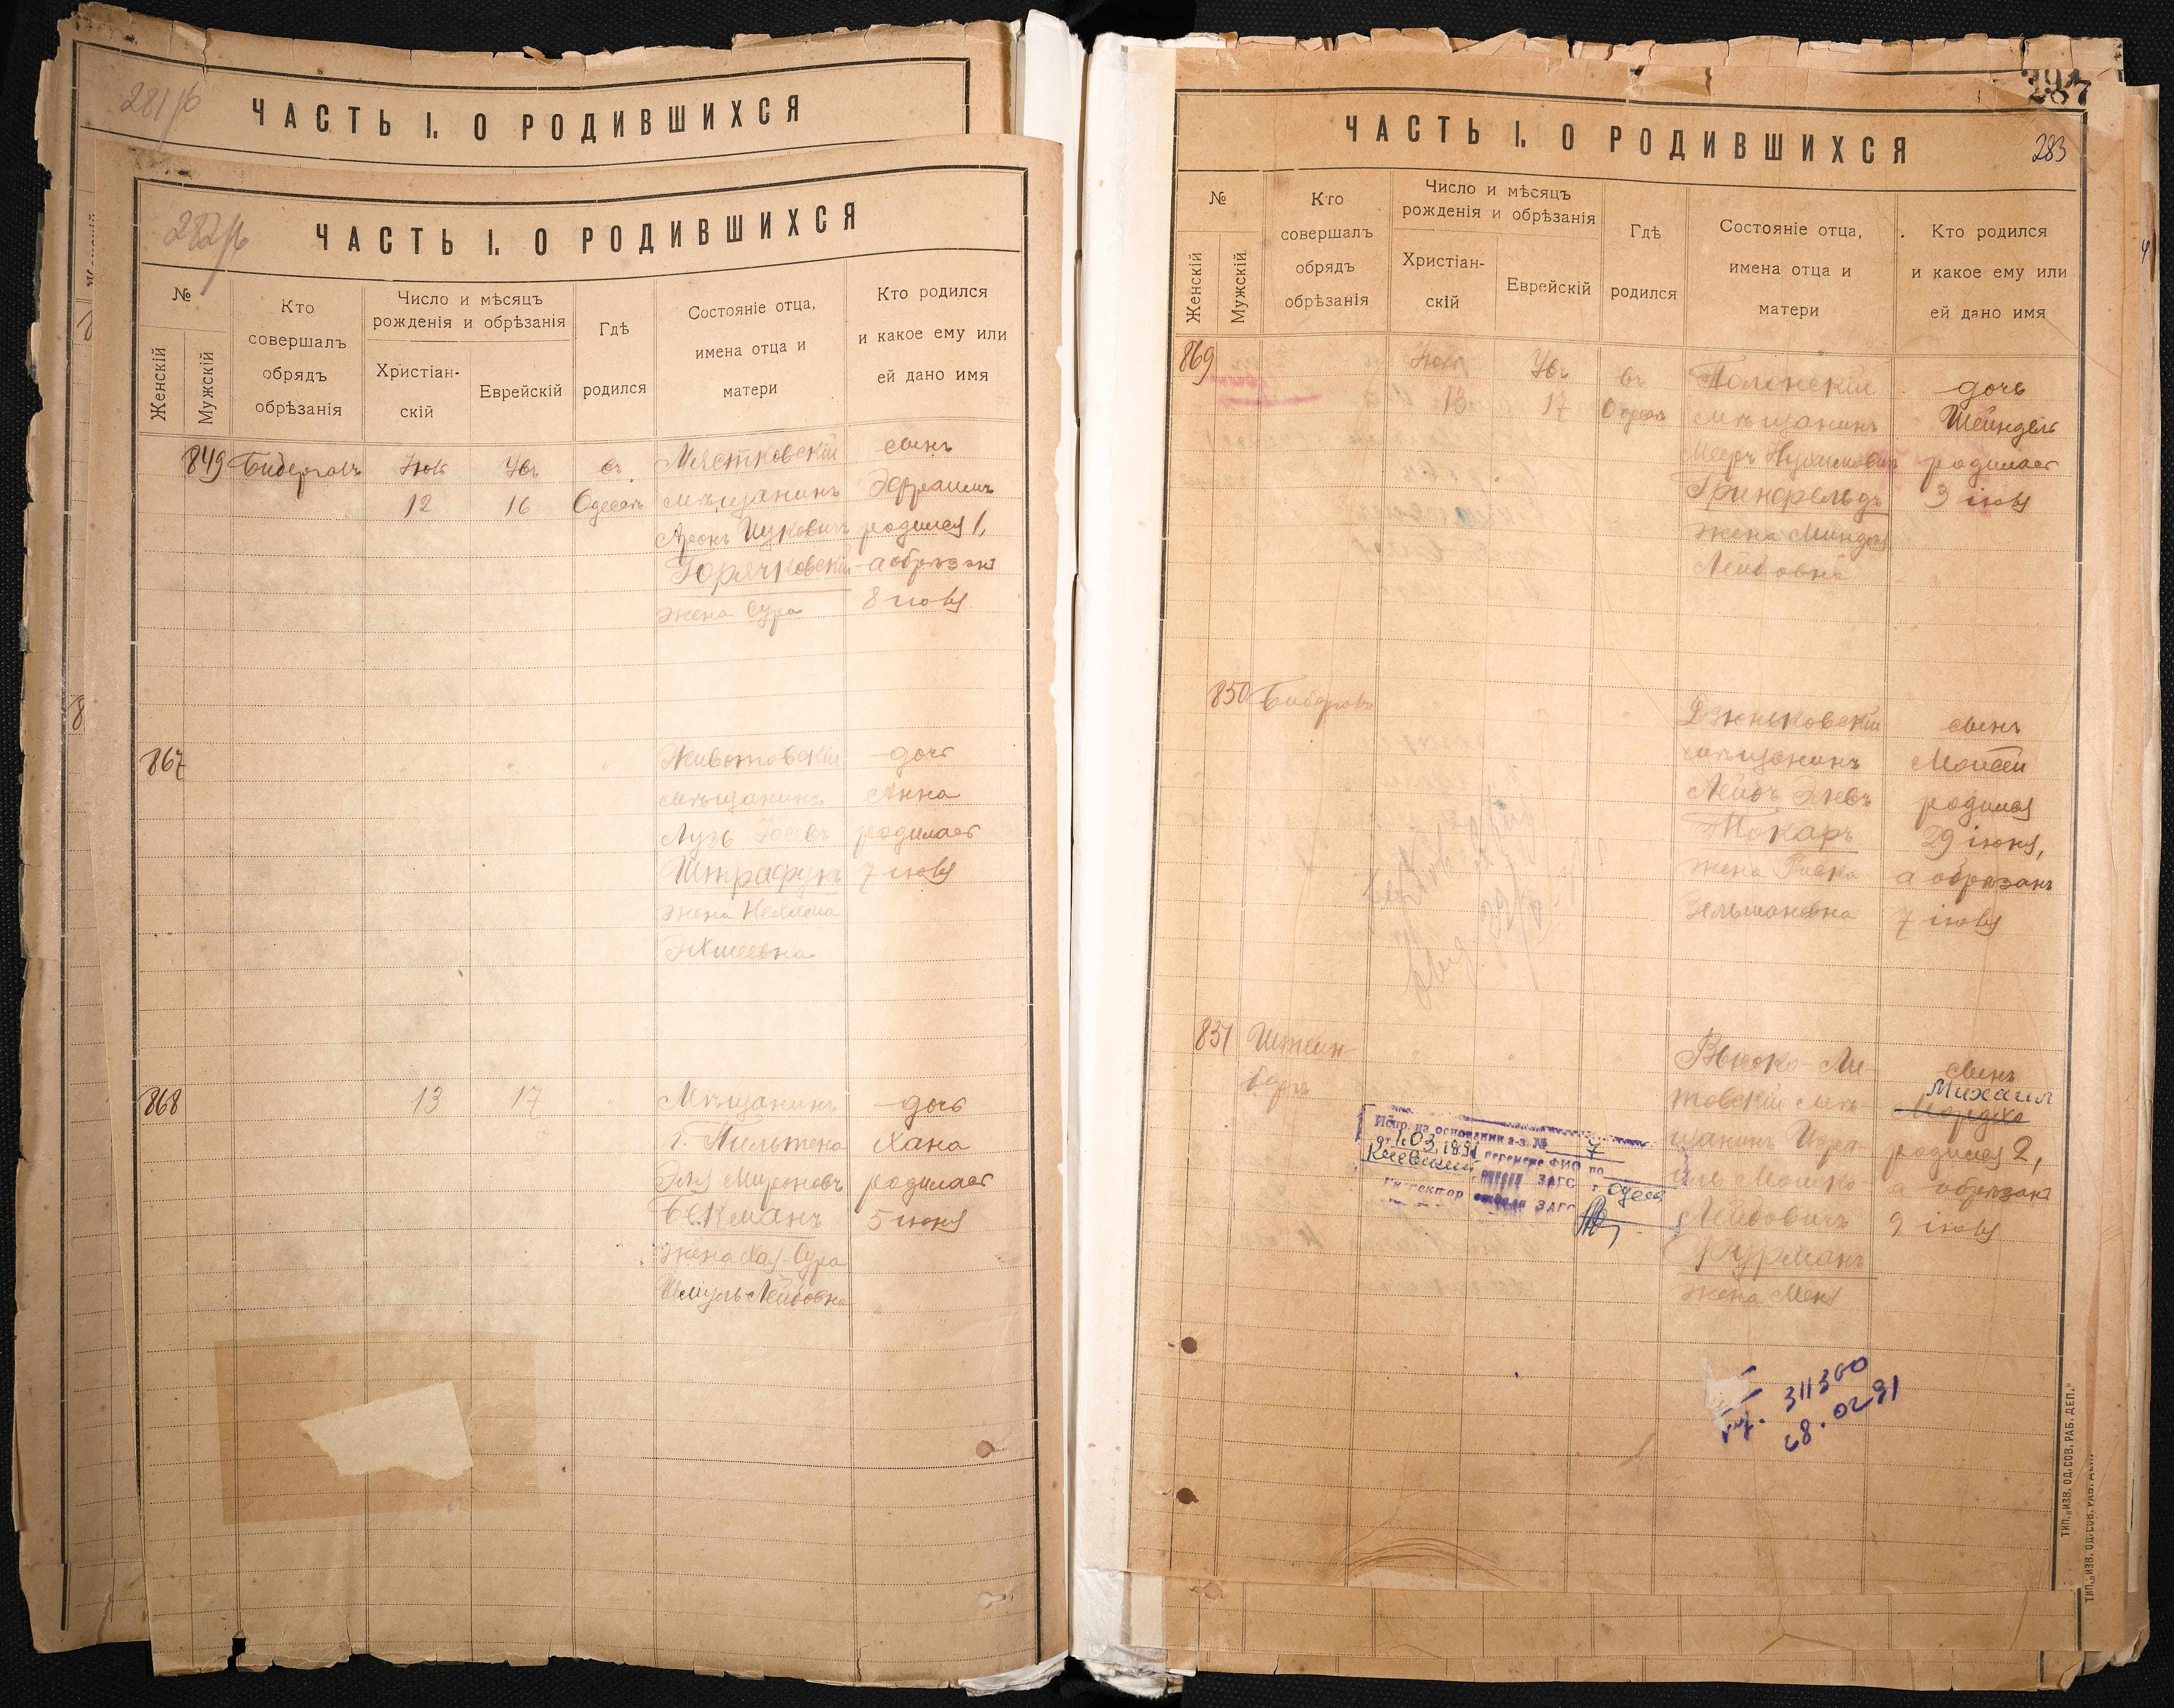 281/б
ЧАСТЬ I. О РОДИВШИХСЯ
282/б
ЧАСТЬ I. О РОДИВШИХСЯ
№
Женскій
Мужскій
Кто
совершалъ
обрядъ
обрѣзанія
Число и мѣсяцъ
рожденія и обрѣзанія
Христіан-
скій
Еврейскій
Гдѣ
родился
Состояніе отца,
имена отца и
матери
Кто родился
и какое ему или
ей дано имя
849
12
16
въ
Одессѣ
Мястковскій
мѣщанинъ
Аронъ Ицковичъ
Горячковскій
жена Сура
сынъ
Эфраимъ
родился 1,
а обрѣзанъ
8 іюля
867
Животовскій
мѣщанинъ
Штрафунъ
жена Нехама
дочь
Анна
родилась
7 іюля
868
13
17
Мѣщанинъ
г. Пильтена
Эля Мироновъ
Бекманъ
жена Хая-Сура
Шмуль-Лейбовна
дочь
Хана
родилась
5 іюня
287
283
ЧАСТЬ I. О РОДИВШИХСЯ
№
Женскій
Мужскій
Кто
совершалъ
обрядъ
обрѣзанія
Число и мѣсяцъ
рожденія и обрѣзанія
Христіан-
скій
Еврейскій
Гдѣ
родился
Состояніе отца,
имена отца и
матери
Кто родился
и какое ему или
ей дано имя
869
13
17
въ
Одессѣ
Полонскій
мѣщанинъ
Мееръ Нухимовичъ
Гринфельдъ
жена Миндля
Лейбовна
дочь
Шейндля
родилась
3 іюля
850
мѣщанинъ
Лейбъ Элевъ
Токаръ
жена Ривка
Зельмановна
сынъ
Моисей
родился
29 іюня,
а обрѣзанъ
7 іюля
851
Штейн-
бергъ
Высоко-Ли-
товскій мѣ-
щанинъ Изра-
иль Мошко-
Лейбовичъ
Фурманъ
жена Меня
сынъ
Михаил
Мордко
родился 2,
а обрѣзанъ
9 іюля
Испр. на основании а-з. № 7
1.03.1991 перемене ФИО по
Киевский ЗАГС г. Одесса
ЗАГС
311360
28.02.91
ТИП. „ИЗВ. ОД. СОВ. РАБ. ДЕП.“